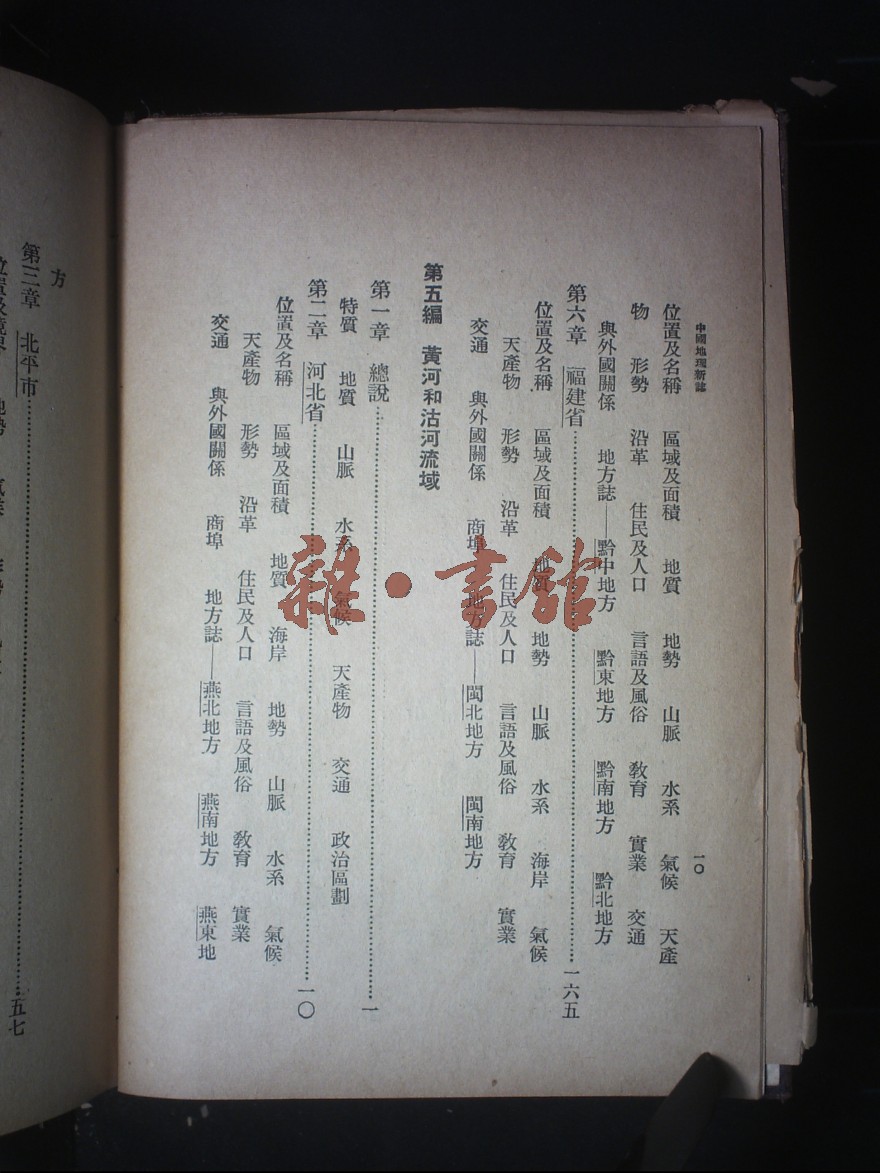 中國地理新誌
一〇
位置及名稱 區域及面積 地質 地勢 山脈 水系 氣候 天產
物 形勢 沿革 住民及人口 言語及風俗 敎育 實業 交通
與外國關係 地方誌——黔中地方 黔東地方 黔南地方 黔北地方
第六章 福建省……一六五
位置及名稱 區域及面積 地質 地勢 山脈 水系 海岸 氣候
天產物 形勢 沿革 住民及人口 言語及風俗 敎育 實業
交通 與外國關係 商埠 地方誌——閩北地方 閩南地方
第五編 黃河和沽河流域
第一章 總說……一
特質 地質 山脈 水系 氣候 天產物 交通 政治區劃
第二章 河北省……一〇
位置及名稱 區域及面積 地質 海岸 地勢 山脈 水系 氣候
天產物 形勢 沿革 住民及人口 言語及風俗 敎育 實業
交通 與外國關係 商埠 地方誌——燕北地方 燕南地方 燕東地
方
第三章 北平市……五七
雜·書館